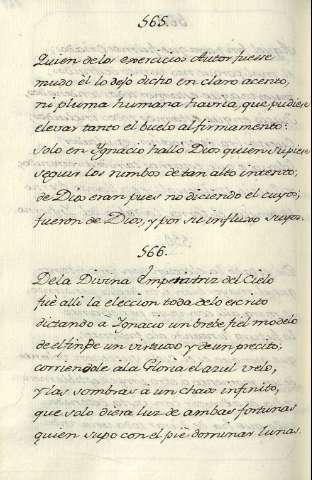 565.
Quien delos exercicios Autor fuesse
mudo él lo dejó dicho en claro acento,
ni pluma humana havria, que pudiese
elevar tanto el buelo al firmamento:
solo en Ygnacio halló Dios quien supiese
seguir los rumbos de tan alto intento,
de Dios eran pues no diciendo el cuyos,
fueron de Dios, y por su influxo suyos.
566.
Dela Divina Emperatriz del Cielo
fuè alli la eleccion toda delo escrito
dictando à Ygnacio un brebe fiel modelo
de el fin de un virtuoso y de un precito;
corriendole ála Gloria el azul velo,
y las sombras à un chaos infinito,
que solo diera luz de ambas fortunas
quien supo con el piè dominar lunas.